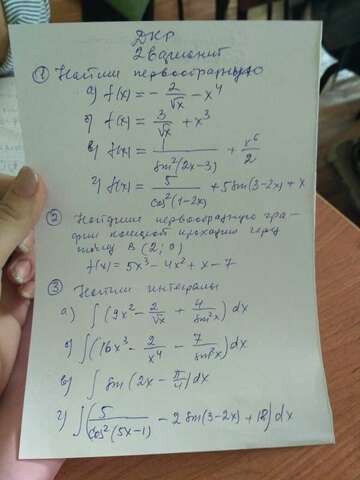 ДКР
2 вариант
① Найти первообразную
а) f(x) = - 2/√x - x⁴
б) f(x) = 3/√x + x³
в) f(x) = 1/sin²(2x-3) + x⁶/2
г) f(x) = 5/cos²(1-2x) + 5sin(3-2x) + x
② Найдите первообразную гра-
фик которой проходит через
точку В (2; 0)
f(x) = 5x³ - 4x² + x - 7
③ Найти интегралы
а) ∫(9x² - 2/√x + 4/sin²x) dx
б) ∫(16x³ - 2/x⁴ - 7/sin²x) dx
в) ∫ sin(2x - π/4) dx
г) ∫(5/cos²(5x-1) - 2sin(3-2x) + 12) dx